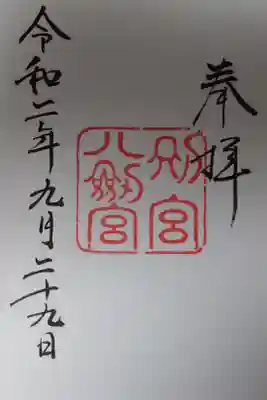 奉拝
別宮
八剣宮
令和二年九月二十九日